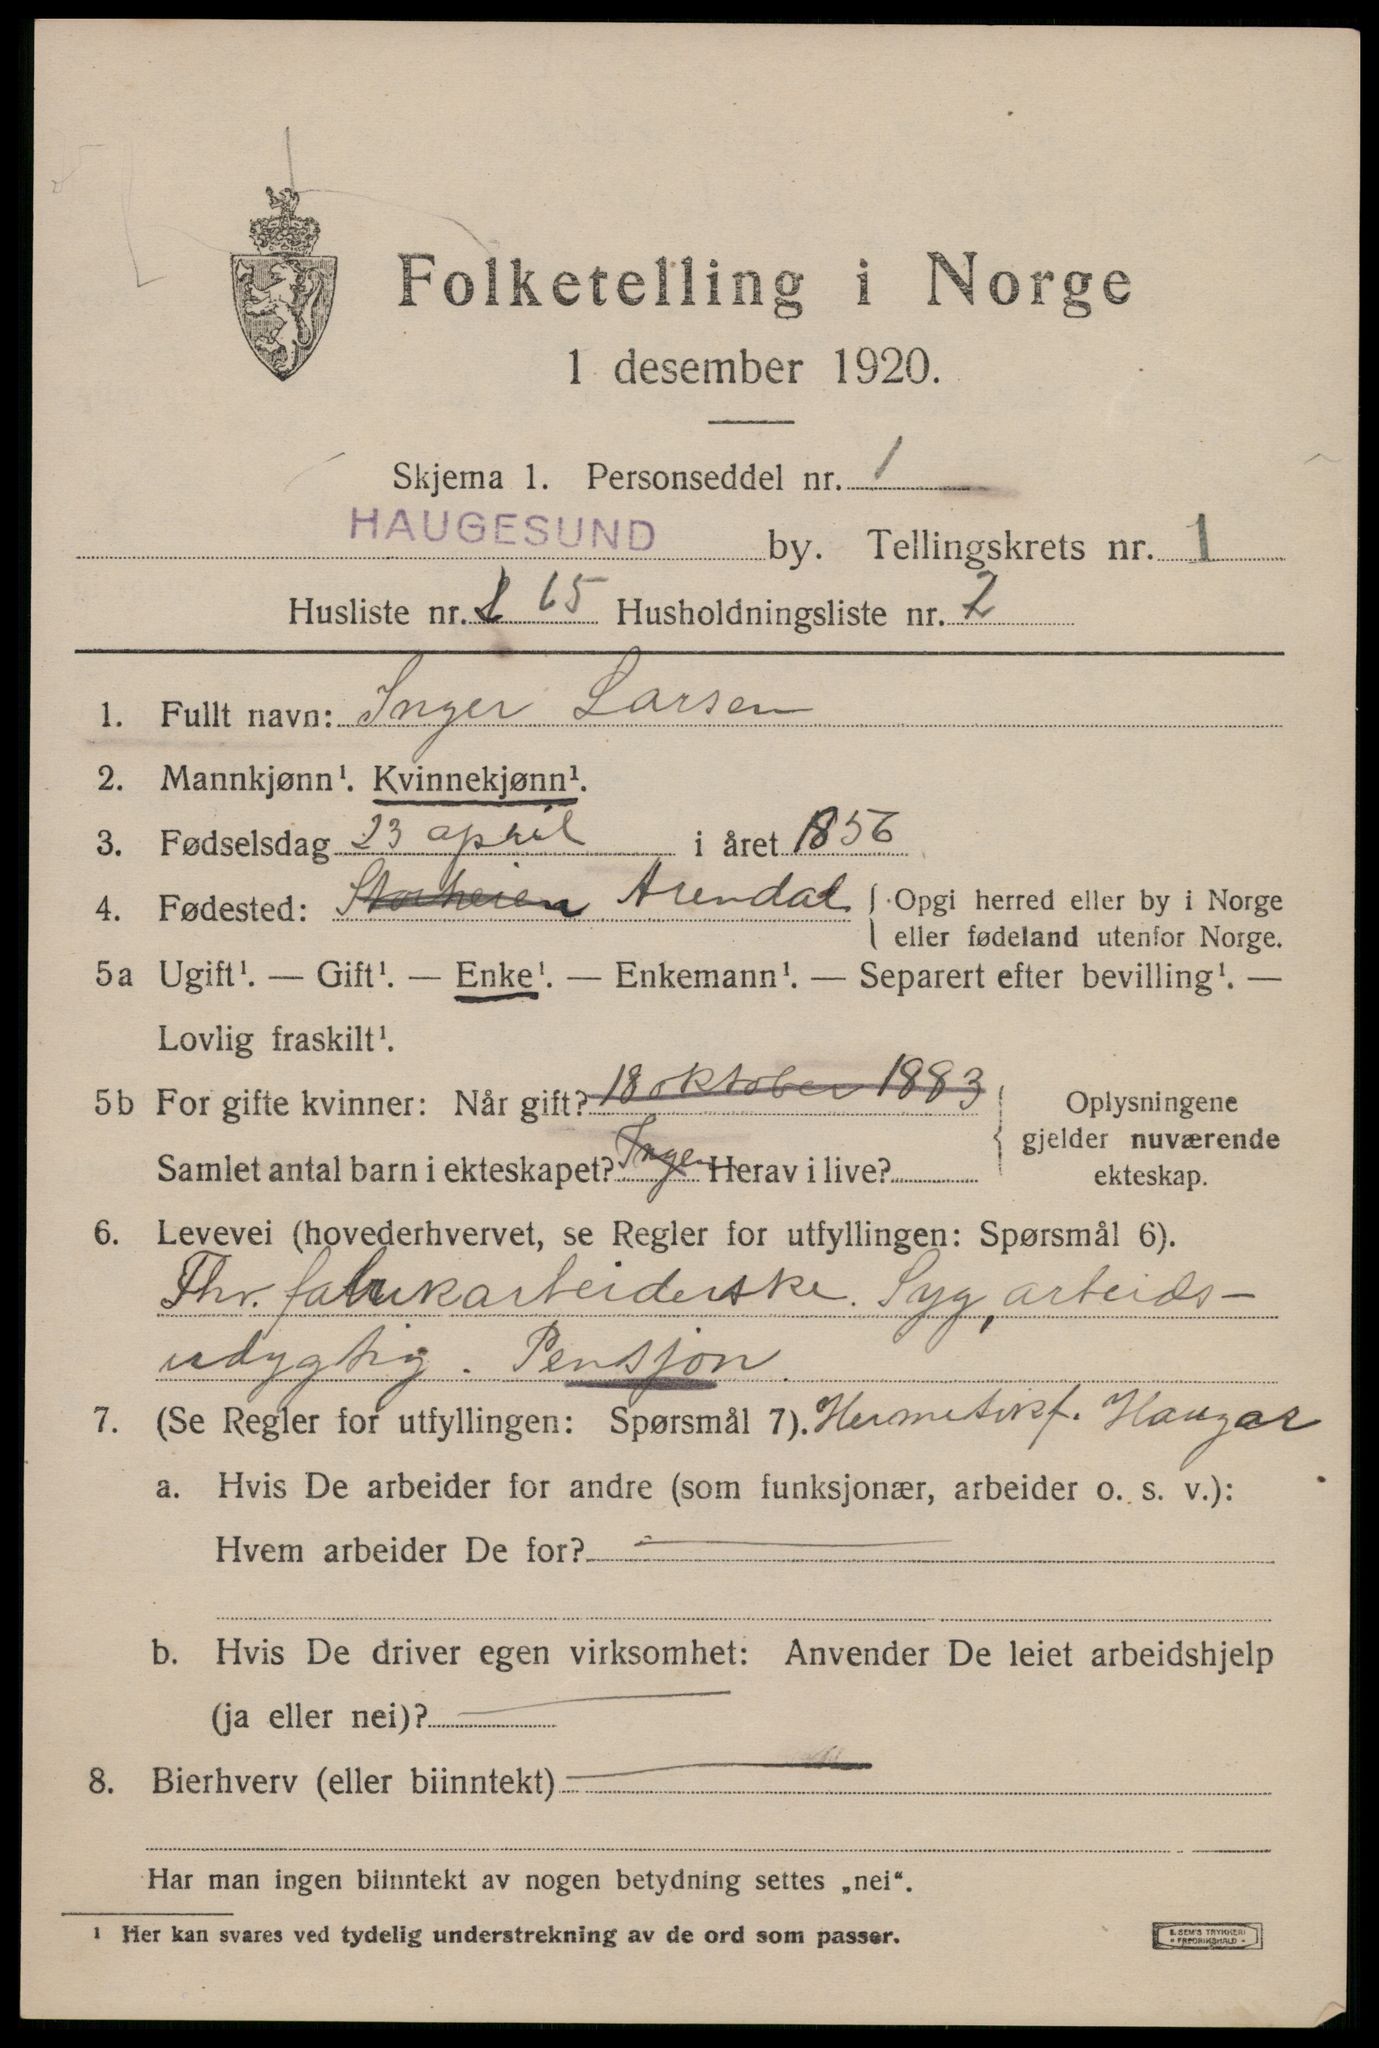 Folketelling i Norge
1 desember 1920.
Skjema 1. Personseddel nr. 1
HAUGESUND by. Tellingskrets nr. 1
Husliste nr. 65 Husholdningsliste nr. 2
1. Fullt navn: Inger Larsen
2. Mannkjønn¹. Kvinnekjønn¹.
3. Fødselsdag 23 april i året 1856
4. Fødested: Storheien Arendal { Opgi herred eller by i Norge
eller fødeland utenfor Norge.
5a Ugift¹. — Gift¹. — Enke¹. — Enkemann¹. — Separert efter bevilling¹. —
Lovlig fraskilt¹.
5b For gifte kvinner: Når gift? 18 oktober 1883
Samlet antal barn i ekteskapet? Ingen Herav i live?
Oplysningene
gjelder nuværende
ekteskap.
6. Levevei (hovederhvervet, se Regler for utfyllingen: Spørsmål 6).
Fhv. fabrikarbeiderske. Syg, arbeids-
udygtig. Pensjon.
7. (Se Regler for utfyllingen: Spørsmål 7). Hermetikf. Haugar
a. Hvis De arbeider for andre (som funksjonær, arbeider o. s. v.):
Hvem arbeider De for? —
b. Hvis De driver egen virksomhet: Anvender De leiet arbeidshjelp
(ja eller nei)? —
8. Bierhverv (eller biinntekt) —
Har man ingen biinntekt av nogen betydning settes „nei“.
¹ Her kan svares ved tydelig understrekning av de ord som passer.
E. SEM'S TRYKKERI
FREDRIKSHALD